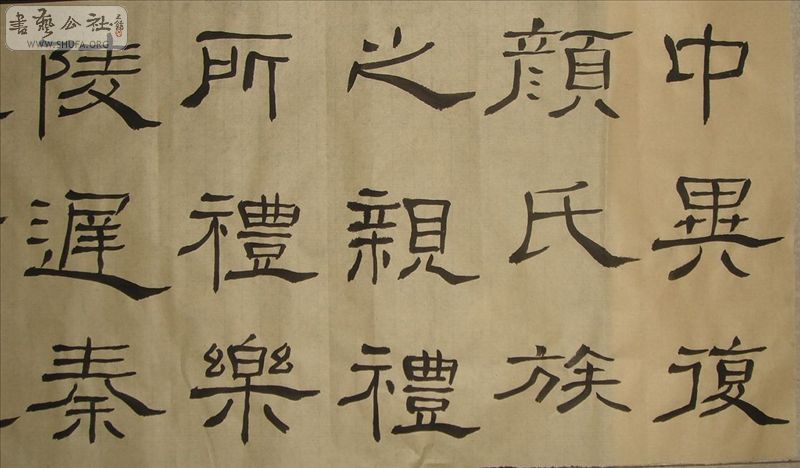 書藝公社
WWW.SHUFA.ORG
中異復
顔氏族
之親禮
所禮樂
陵遲秦